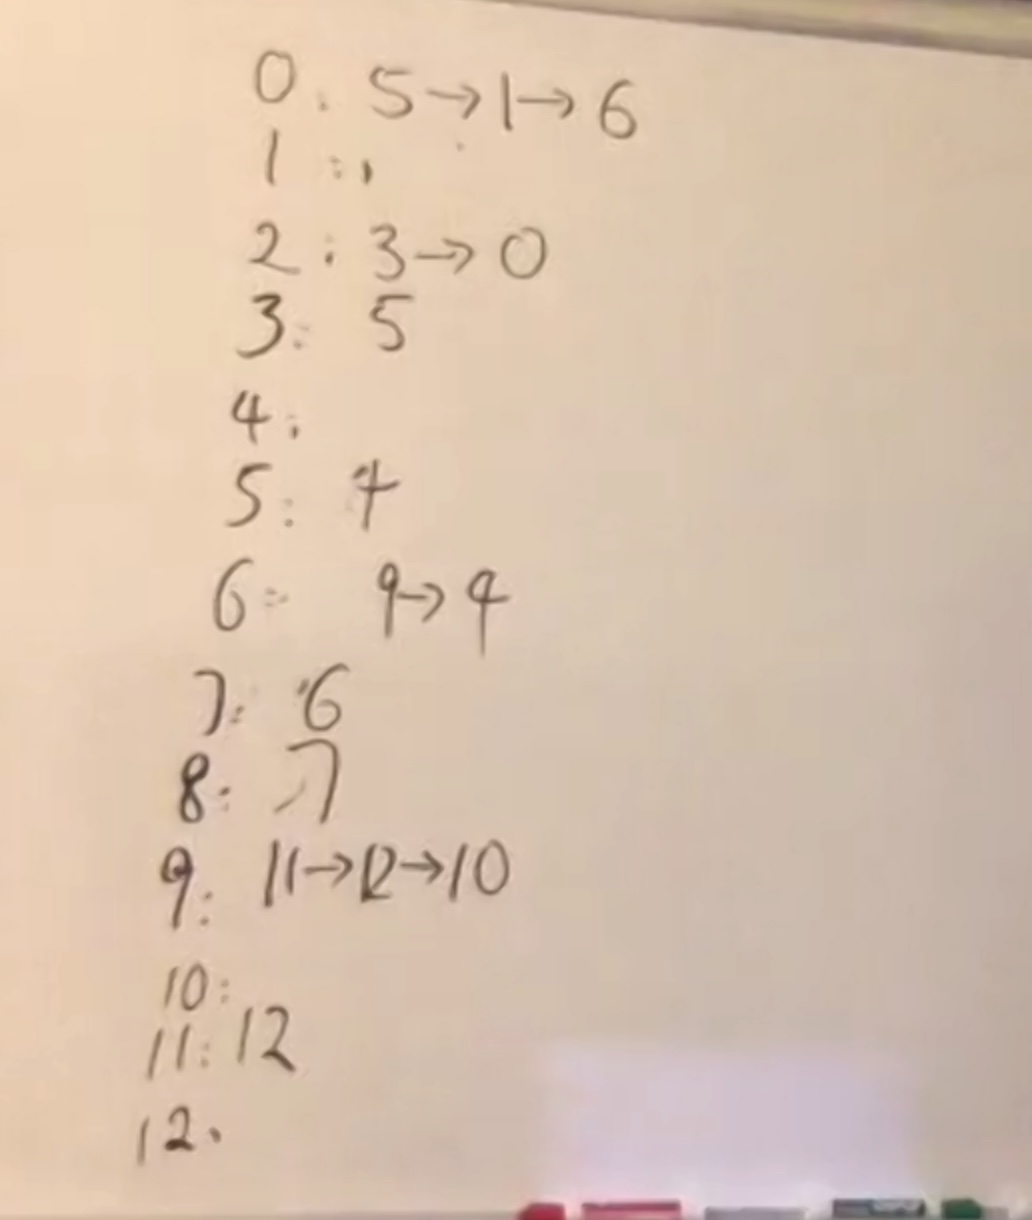 0: 5→1→6
1:
2: 3→0
3: 5
4:
5: 4
6: 9→4
7: 6
8: 7
9: 11→12→10
10:
11: 12
12: